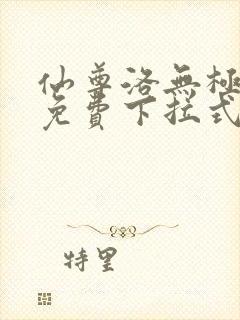 仙尊洛無極
免費下拉式
特里